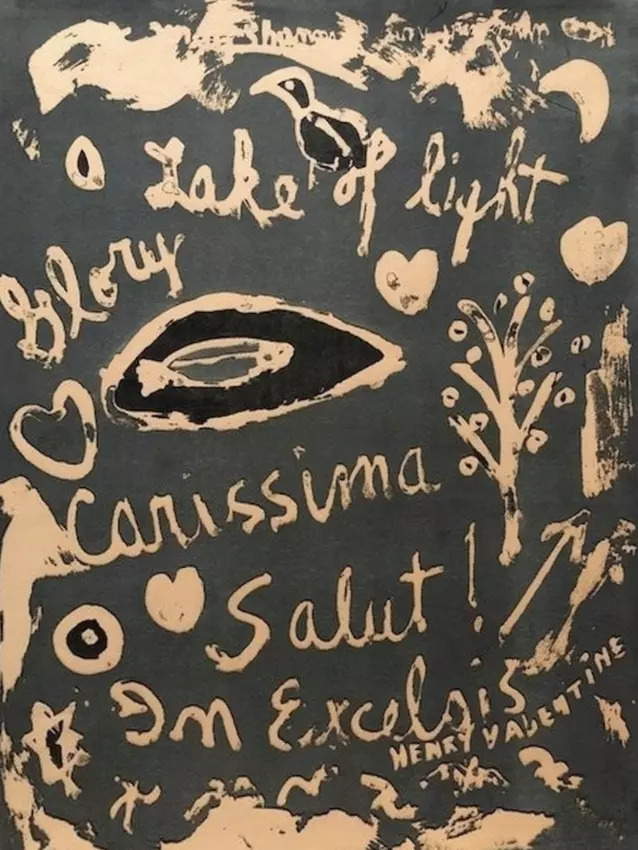 Lake of light
Glory
Carissima
Salut !
In Excelsis
HENRY VALENTINE